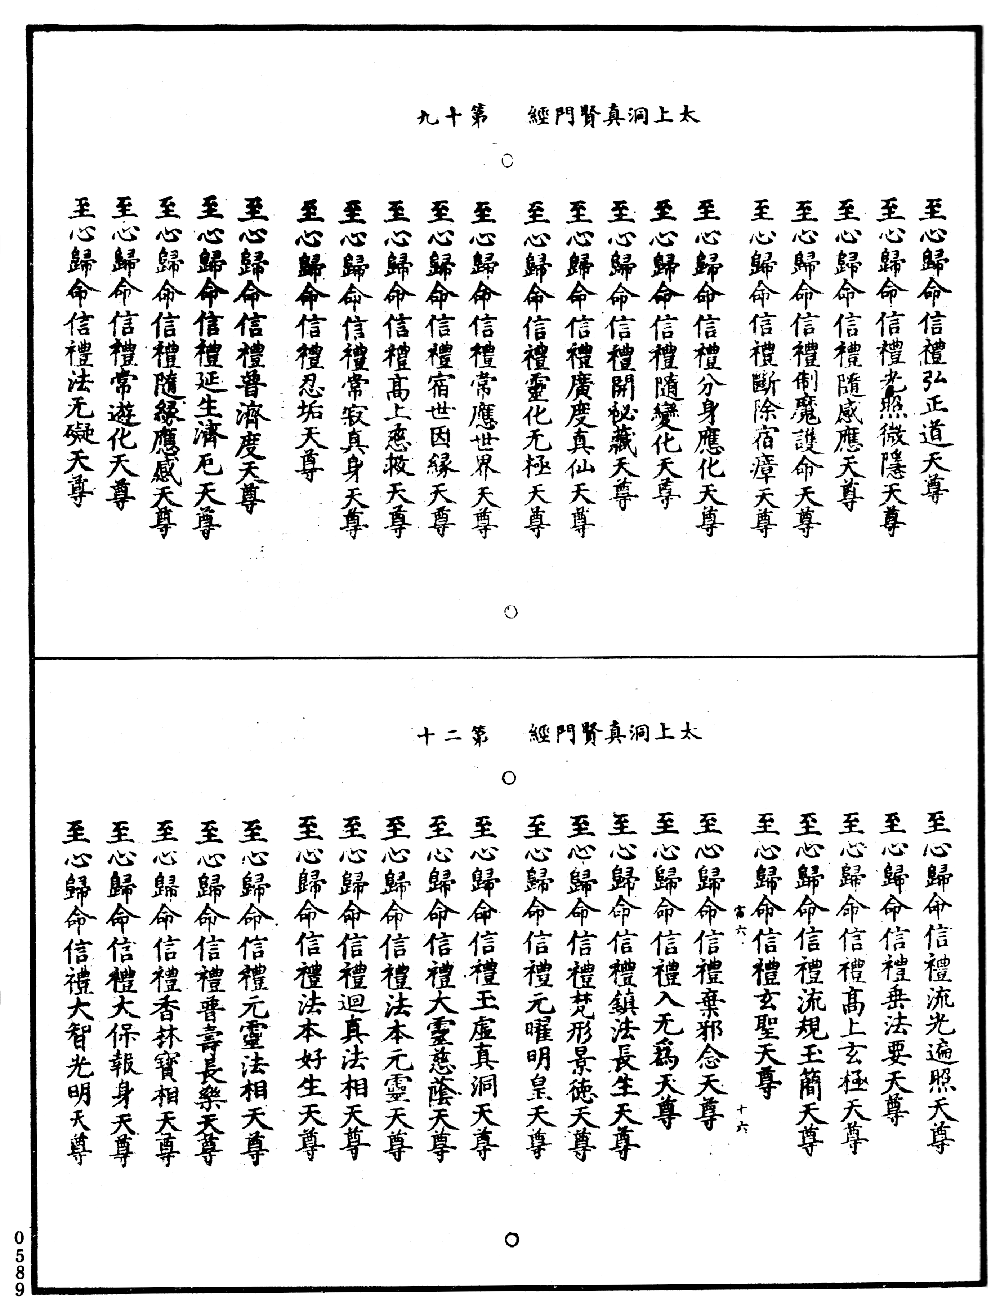 太上洞真賢門經　第十九
至心歸命信禮弘正道天尊
至心歸命信禮光照微隱天尊
至心歸命信禮隨感應天尊
至心歸命信禮制魔護命天尊
至心歸命信禮斷除宿瘴天尊
至心歸命信禮分身應化天尊
至心歸命信禮隨變化天尊
至心歸命信禮開祕藏天尊
至心歸命信禮廣度真仙天尊
至心歸命信禮靈化无極天尊
至心歸命信禮常應世界天尊
至心歸命信禮宿世因緣天尊
至心歸命信禮高上慈救天尊
至心歸命信禮常寂真身天尊
至心歸命信禮忍垢天尊
至心歸命信禮普濟度天尊
至心歸命信禮延生濟厄天尊
至心歸命信禮隨緣應感天尊
至心歸命信禮常遊化天尊
至心歸命信禮法无礙天尊
太上洞真賢門經　第二十
至心歸命信禮流光遍照天尊
至心歸命信禮乗法要天尊
至心歸命信禮高上玄極天尊
至心歸命信禮流規玉簡天尊
至心歸命信禮玄聖天尊
六
十六
至心歸命信禮棄邪念天尊
至心歸命信禮入无為天尊
至心歸命信禮鎮法長生天尊
至心歸命信禮梵形景德天尊
至心歸命信禮元曜明皇天尊
至心歸命信禮玉虛真洞天尊
至心歸命信禮大靈慈蔭天尊
至心歸命信禮法本元靈天尊
至心歸命信禮迴真法相天尊
至心歸命信禮法本好生天尊
至心歸命信禮元靈法相天尊
至心歸命信禮普壽長樂天尊
至心歸命信禮香林寶相天尊
至心歸命信禮大保報身天尊
至心歸命信禮大智光明天尊
0589